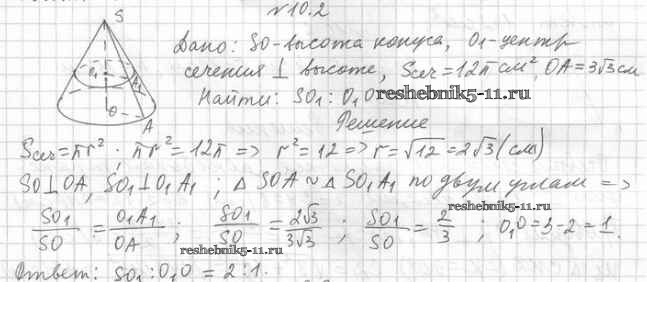 №10.2
S
Дано: SO-высота конуса, O₁-центр
сечения ⊥ высоте, Sсеч=12π см², OA=3√3 см
O₁ A₁
Найти: SO₁:O₁O
reshebnik5-11.ru
O
A
Решение
Sсеч=πr²; πr²=12π => r²=12 => r=√12=2√3(см)
SO⊥OA, SO₁⊥O₁A₁; △SOA~△SO₁A₁ по двум углам =>
SO₁/SO = O₁A₁/OA; SO₁/SO = 2√3/3√3; SO₁/SO = 2/3; O₁O=3-2=1.
reshebnik5-11.ru
Ответ: SO₁:O₁O = 2:1.